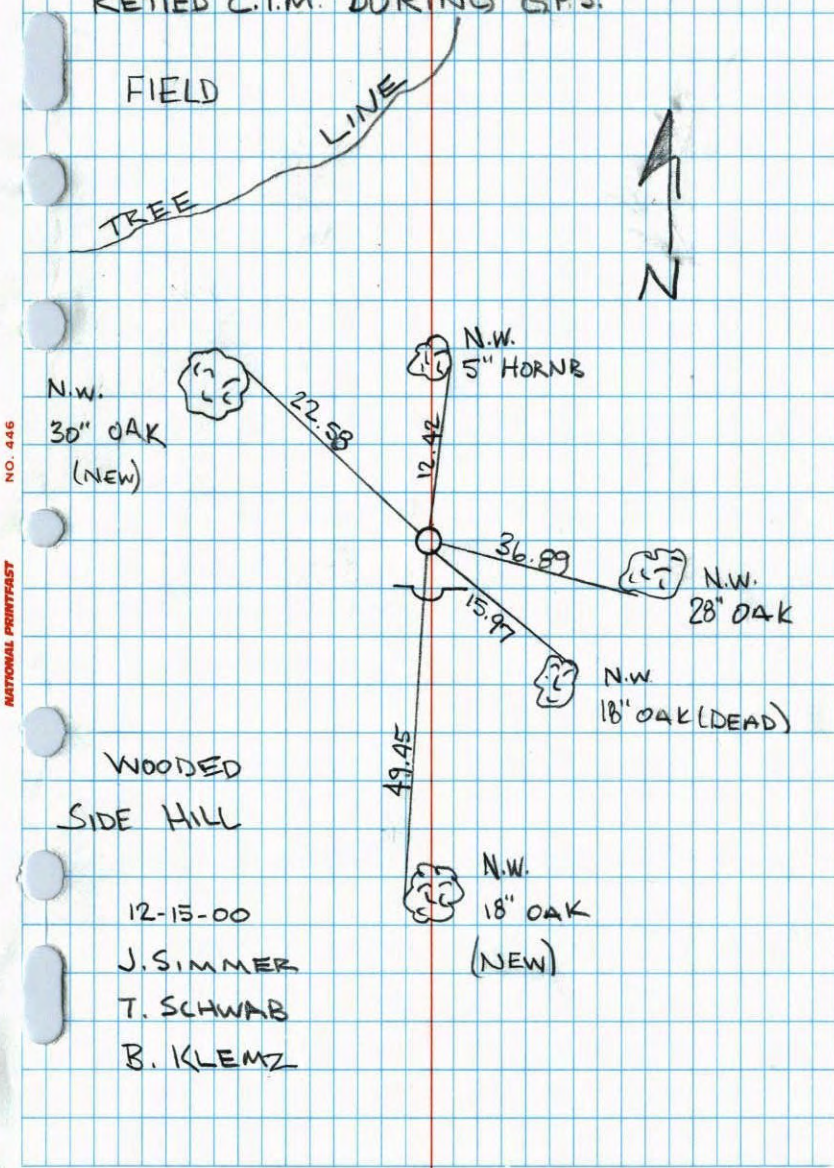 RETIED C.I.M. DURING G.P.S.
FIELD
TREE LINE
N
N.W.
5" HORNB
N.W.
30" OAK
(NEW)
22.58
12.42
36.89
N.W.
28" OAK
15.97
N.W.
18" OAK (DEAD)
49.45
WOODED
SIDE HILL
N.W.
18" OAK
(NEW)
12-15-00
J. SIMMER
T. SCHWAB
B. KLEMZ
NO. 446
NATIONAL PRINTFAST